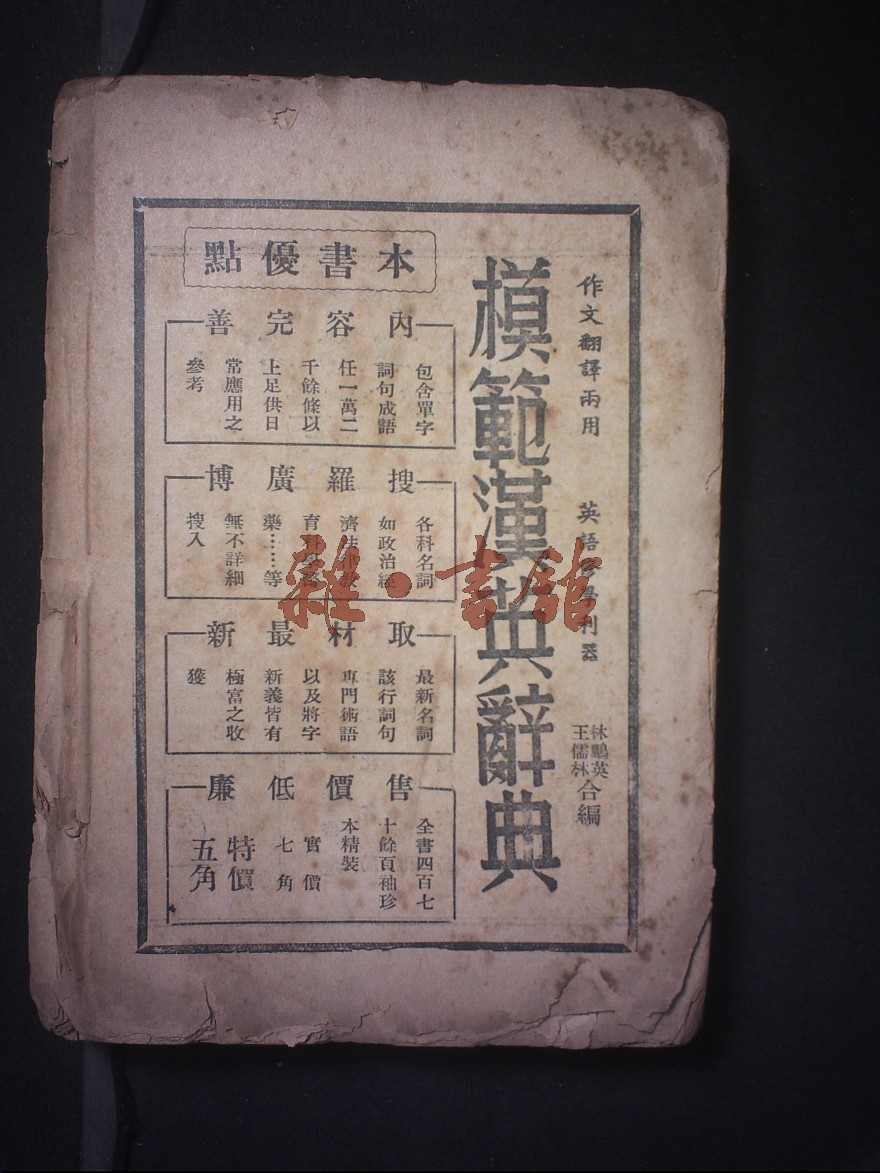 作文翻譯兩用
英語學習利器
模範漢英辭典
林鵬英
王儒林
合編
本書優點
內容完善
包含單字
詞句成語
任一萬二
千餘條以
上足供日
常應用之
參考
搜羅廣博
各科名詞
如政治經
濟法律教
育科學醫
藥……等
無不詳細
搜入
取材最新
最新名詞
該行詞句
專門術語
以及將字
新義皆有
極富之收
獲
售價低廉
全書四百七
十餘頁袖珍
本精裝
實價
七角
特價
五角
雜·書館